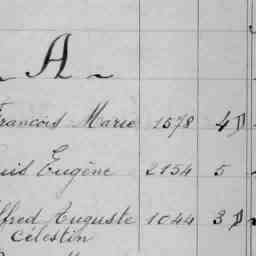 A
François Marie 1578 4 D
uis Eugène 2154 5
lfred Auguste 1044 3 D
Célestin